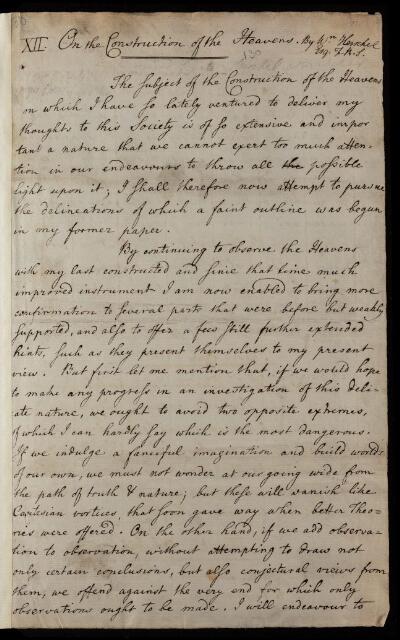 XII. On the Construction of the Heavens. By Wm. Herschel
Esq. F.R.S.
The Subject of the Construction of the Heavens
on which I have so lately ventured to deliver my
thoughts to this Society is of so extensive and impor
tant a nature that we cannot exert too much atten-
tion in our endeavours to throw all the possible
light upon it; I shall therefore now attempt to pursue
the delineations of which a faint outline was begun
in my former paper.
By continuing to observe the Heavens
with my last constructed and since that time much
improved instrument I am now enabled to bring more
confirmation to several parts that were before but weakly
supported, and also to offer a few still further extended
hints, such as they present themselves to my present
view. But first let me mention that, if we would hope
to make any progress in an investigation of this deli-
cate nature, we ought to avoid two opposite extremes,
of which I can hardly say which is the most dangerous.
If we indulge a fanciful imagination and build worlds
of our own, we must not wonder at our going wide from
the path of truth & nature; but these will vanish like
Cartesian vortices, that soon gave way when better theo-
ries were offered. On the other hand, if we add observa-
tion to observation, without attempting to draw not
only certain conclusions, but also conjectural views from
them, we offend against the very end for which only
observations ought to be made. I will endeavour to